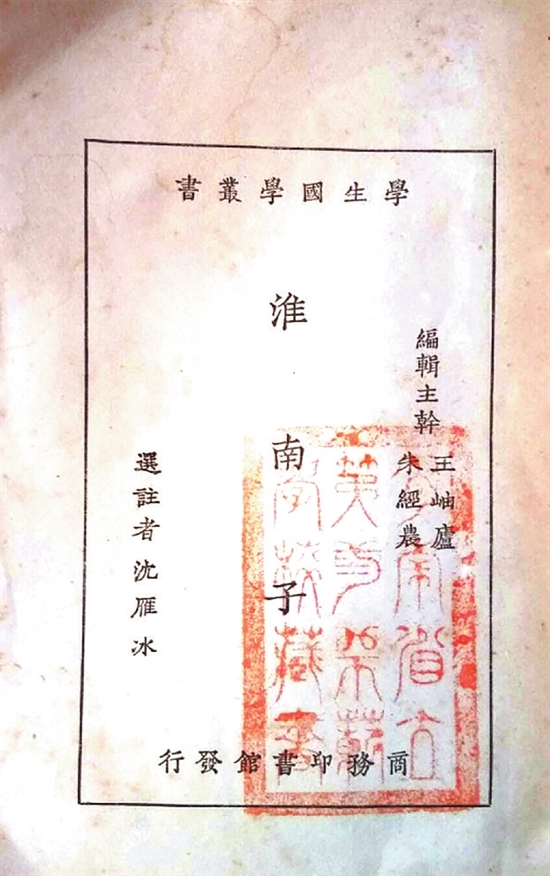 學生國學叢書
編輯主幹
王岫廬
朱經農
淮南子
選註者沈雁冰
商務印書館發行
南省立
學校藏書